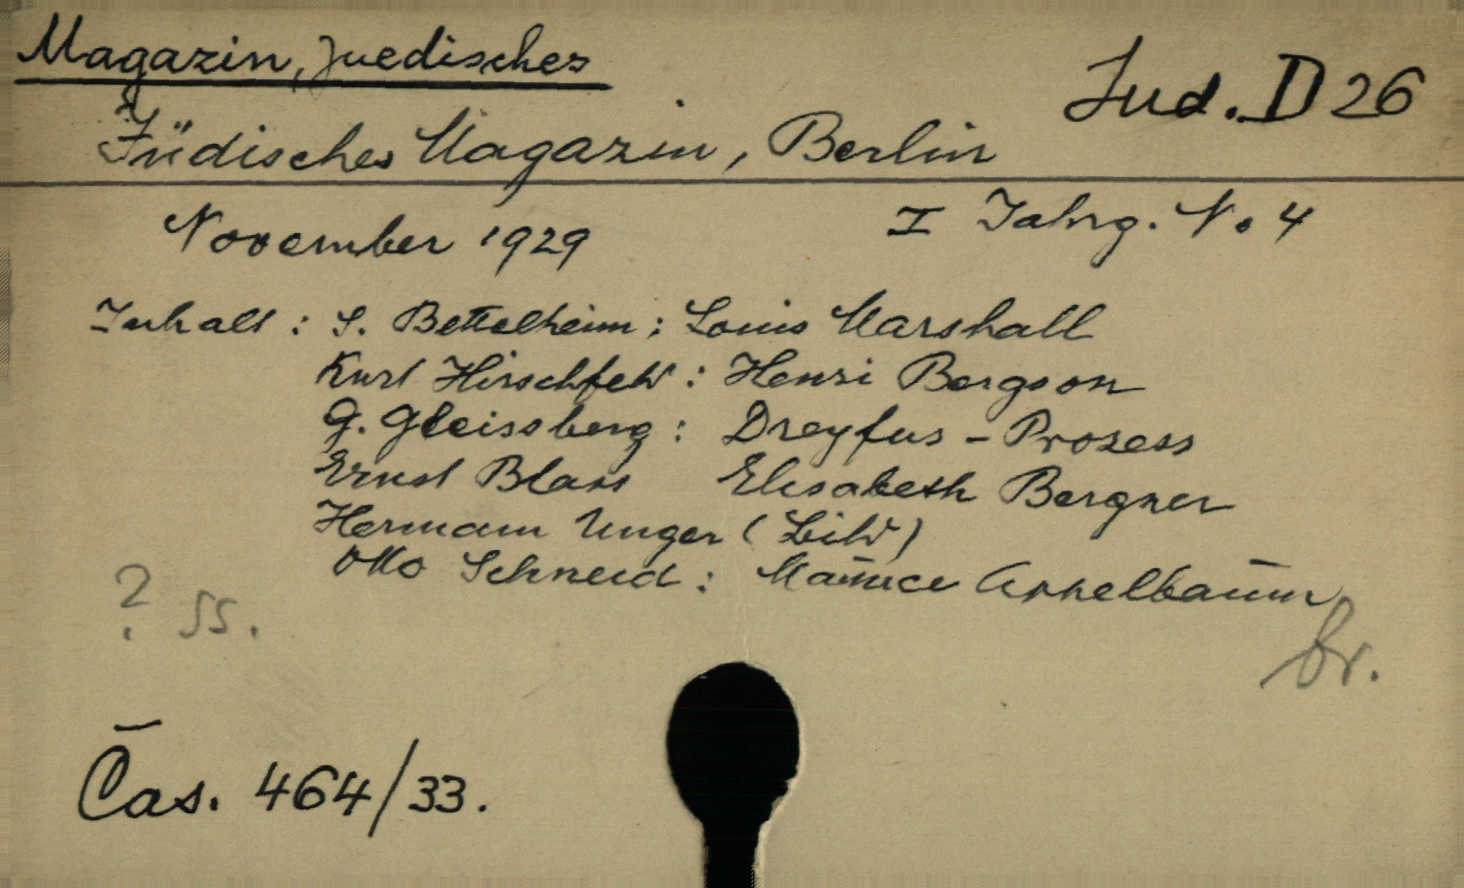 Magazin, Juedisches
Jud. D 26
Jüdisches Magazin, Berlin
November 1929
I Jahrg. No 4
Inhalt: S. Bettelheim: Louis Marshall
Kurt Hirschfeld: Henri Bergson
G. Gleissberg: Dreyfus-Prozess
Ernst Blass Elisabeth Bergner
Hermann Unger (Bild)
Otto Schneid: Maurice Appelbaum
? SS.
br.
Čas. 464/33.